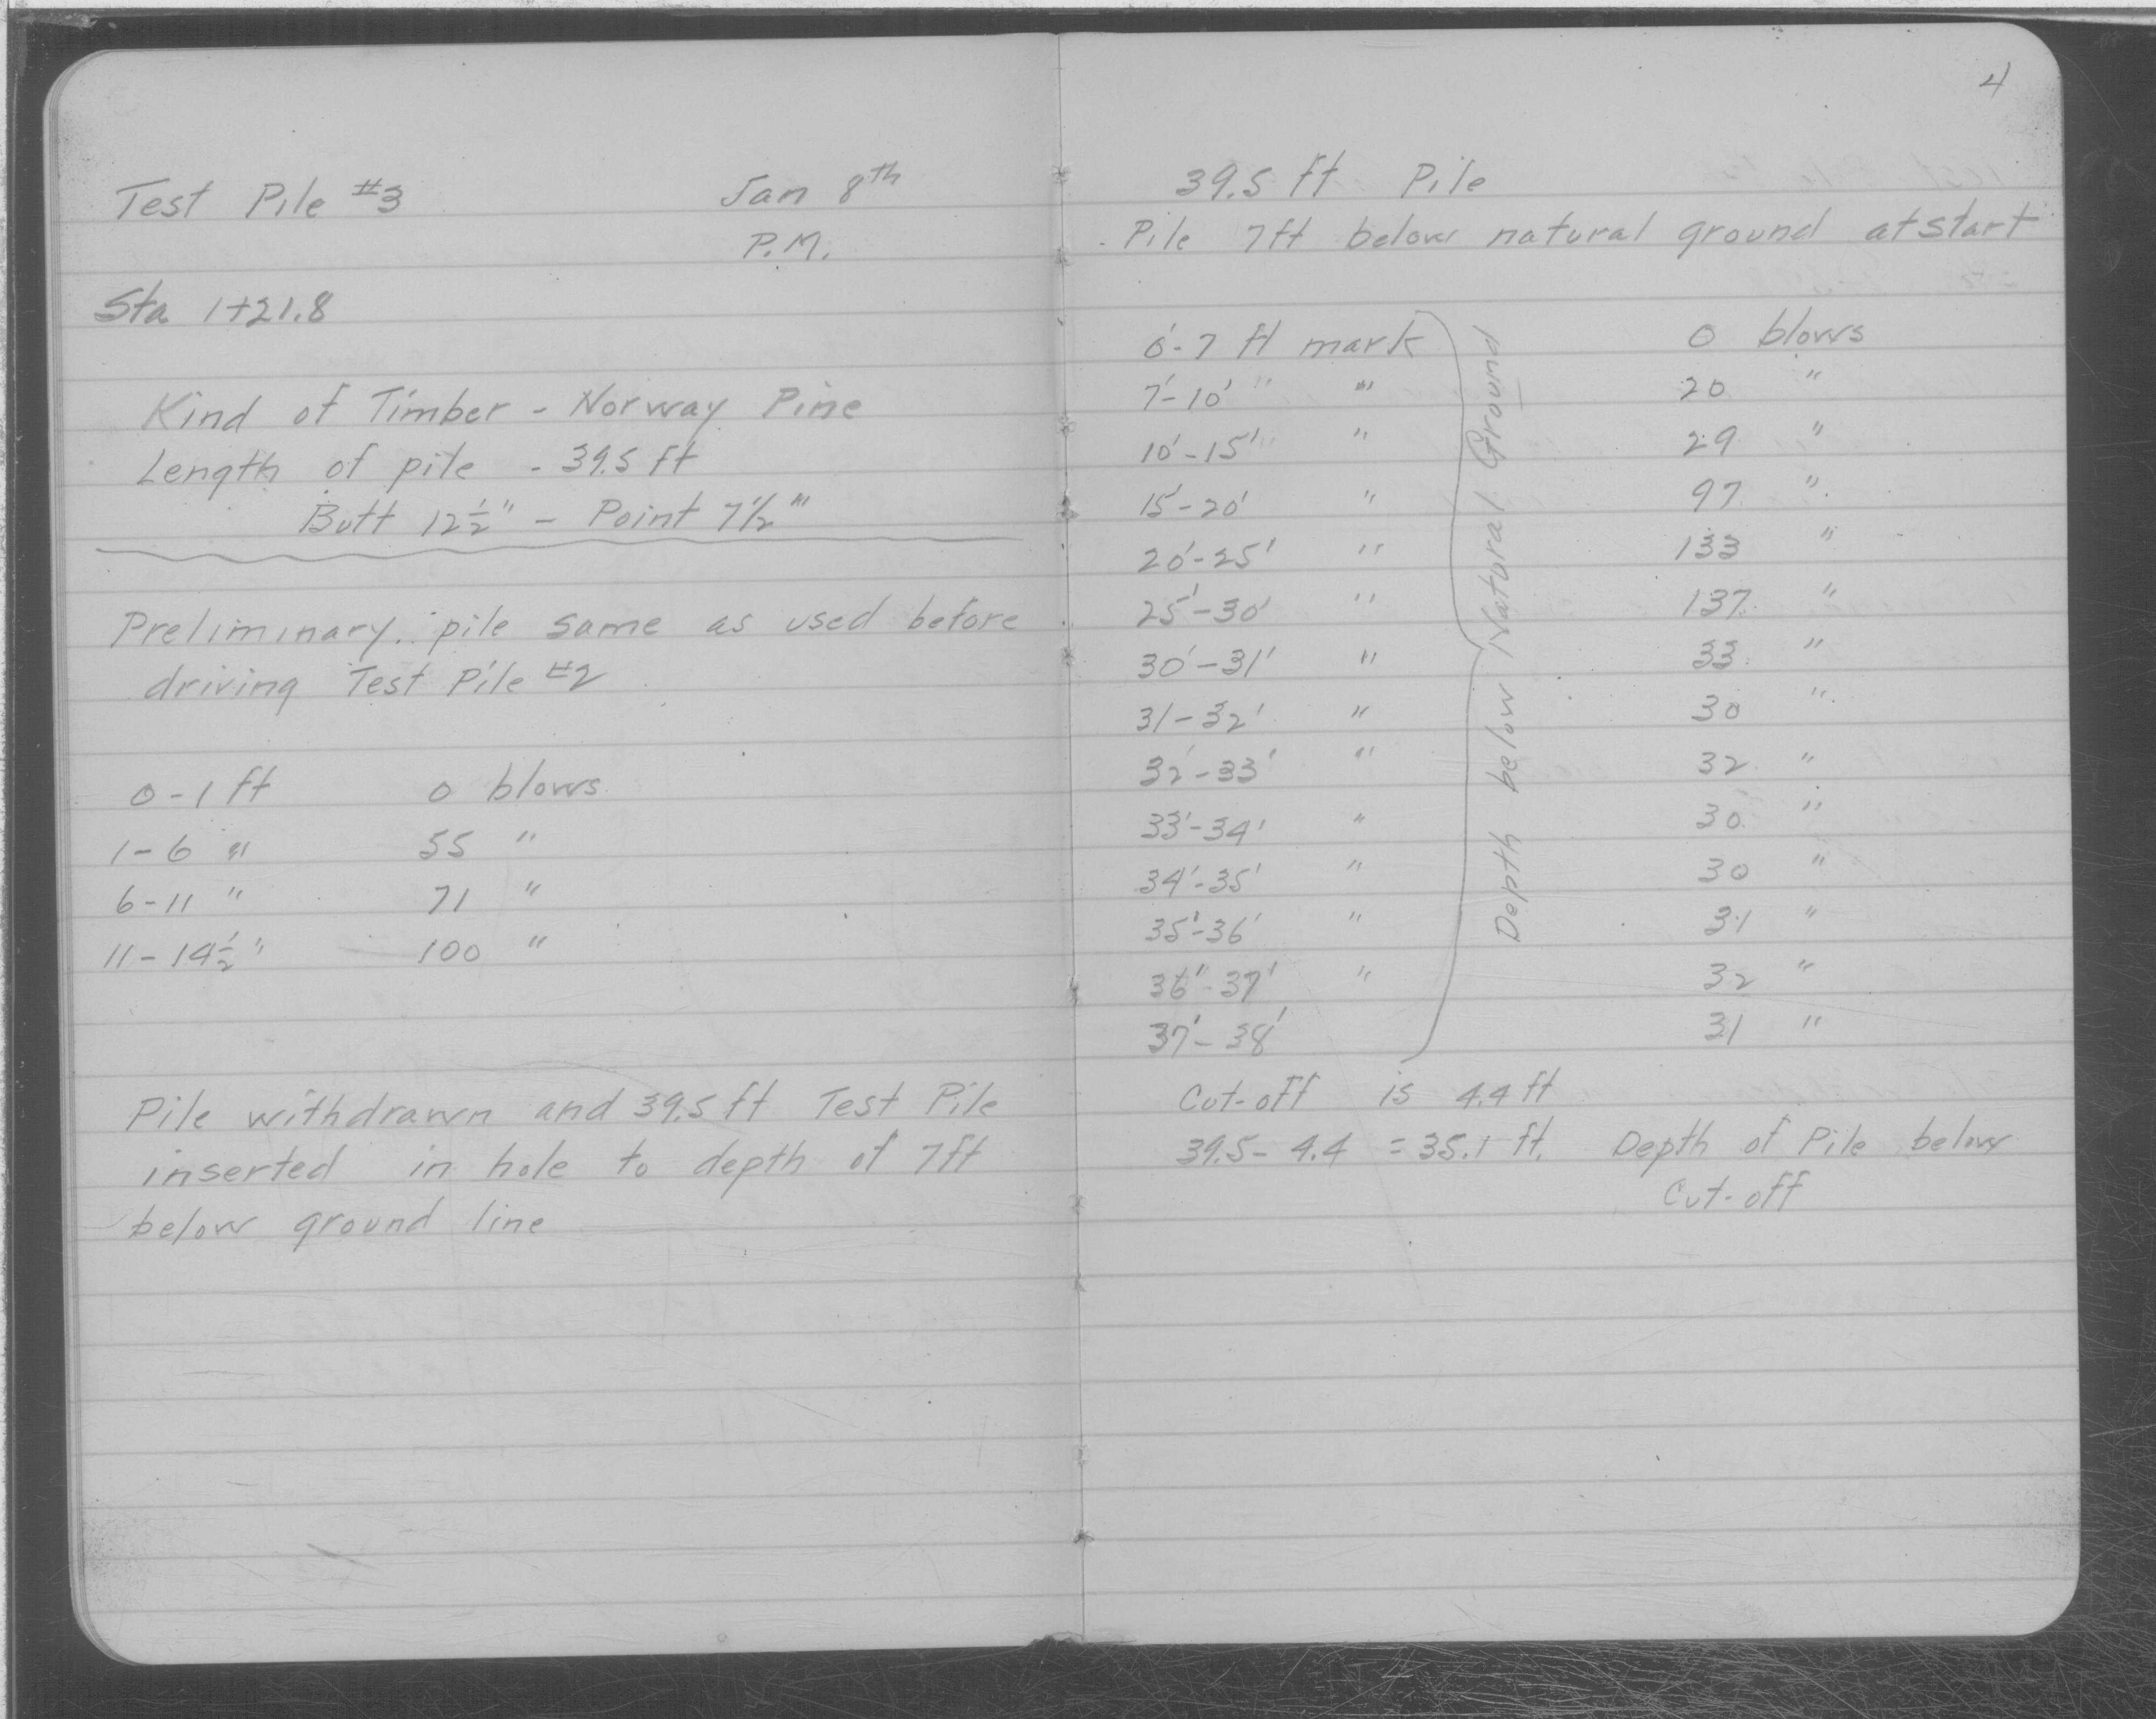 Test Pile #3 Jan 8th
P.M.
Sta 1+21.8
Kind of Timber - Norway Pine
Length of pile - 39.5 ft
Butt 12 1/2" - Point 7 1/2"
Preliminary pile same as used before
driving Test Pile #2
0-1 ft 0 blows
1-6 " 55 "
6-11 " 71 "
11-14 1/2 " 100 "
Pile withdrawn and 39.5 ft Test Pile
inserted in hole to depth of 7ft
below ground line
4
39.5 ft Pile
Pile 7ft below natural ground at start
0'-7 ft mark 0 blows
7'-10' " " 20 "
10'-15' " " 29 "
15'-20' " 97 "
20'-25' " 133 "
25'-30' " 137 "
30'-31' " 33 "
31-32' " 30 "
32'-33' " 32 "
33'-34' " 30 "
34'-35' " 30 "
35'-36' " 31 "
36'-37' " 32 "
37'-38' 31 "
Depth below Natural Ground
Cut-off is 4.4 ft
39.5-4.4 = 35.1 ft. Depth of Pile below
Cut-off